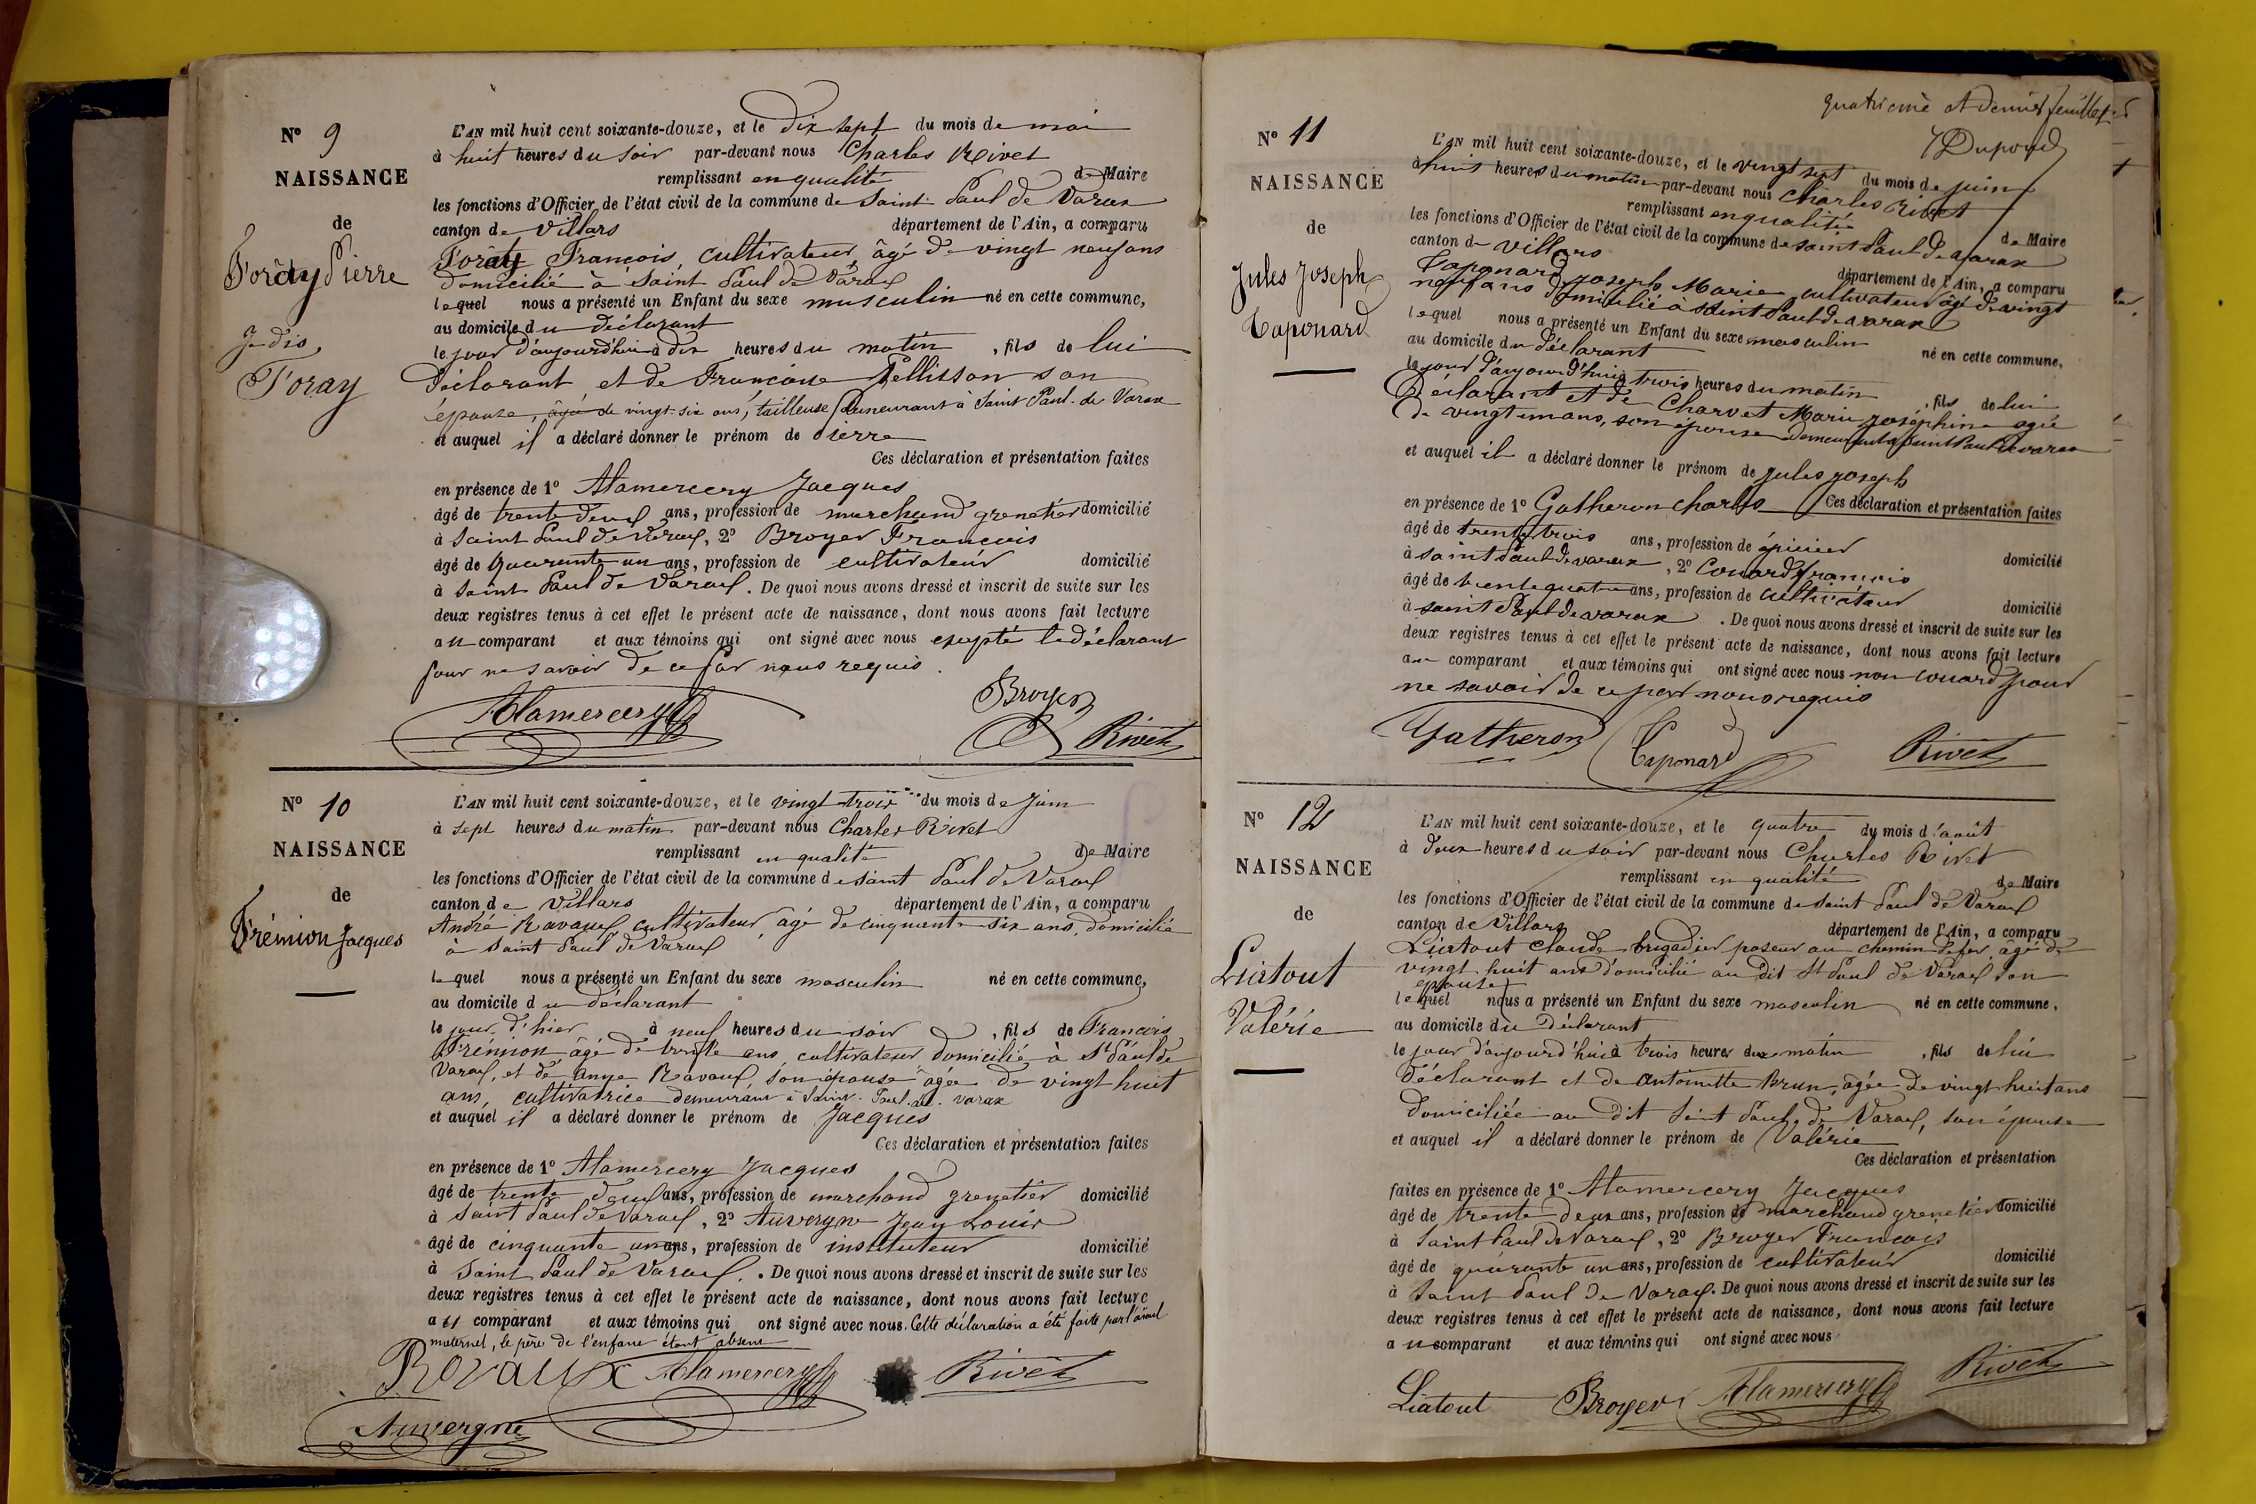 N° 9
NAISSANCE
de
Foray Pierre
Je dis
Foray
L'AN mil huit cent soixante-douze, et le dix sept du mois de mai
à huit heures du soir par-devant nous Charles Rivet
remplissant en qualité de Maire
les fonctions d'Officier de l'état civil de la commune de Saint Paul de Varax
canton de Villars département de l'Ain, a comparu
Foraty François, cultivateur, âgé de vingt neuf ans
domicilié à Saint Paul de Varax
lequel nous a présenté un Enfant du sexe musculin né en cette commune,
au domicile du déclarant
le jour d'aujourd'hui à dix heures du matin, fils de lui
Déclarant et de Françoise Pellisson son
épouse, âgée de vingt-six ans, tailleuse demeurant à Saint Paul-de Varax
et auquel il a déclaré donner le prénom de Pierre
Ces déclaration et présentation faites
en présence de 1° Alamercery Jacques
âgé de trente deux ans, profession de marchand grenetier domicilié
à Saint Paul de Varax, 2° Broyer François
âgé de quarante un ans, profession de cultivateur domicilié
à Saint Paul de Varax. De quoi nous avons dressé et inscrit de suite sur les
deux registres tenus à cet effet le présent acte de naissance, dont nous avons fait lecture
au comparant et aux témoins qui ont signé avec nous excepté le déclarant
pour ne savoir de ce par nous requis.
Alamercery Broyer
Rivet
N° 10
NAISSANCE
de
Frémion Jacques
L'AN mil huit cent soixante-douze, et le vingt trois du mois de juin
à sept heures du matin par-devant nous Charles Rivet
remplissant en qualité de Maire
les fonctions d'Officier de l'état civil de la commune de Saint Paul de Varax
canton de Villars département de l'Ain, a comparu
André Ravaux, cultivateur, âgé de cinquante six ans, domicilié
à Saint Paul de Varax
lequel nous a présenté un Enfant du sexe masculin né en cette commune,
au domicile du déclarant
le jour d'hier à neuf heures du soir, fils de François
Frémion âgé de trente ans, cultivateur domicilié à St Paul de
Varax, et de Anne Ravaux son épouse âgée de vingt huit
ans, cultivatrice demeurant à Saint-Paul-de-Varax
et auquel il a déclaré donner le prénom de Jacques
Ces déclaration et présentation faites
en présence de 1° Alamercery Jacques
âgé de trente deux ans, profession de marchand grenetier domicilié
à Saint Paul de Varax, 2° Auvergne Jean Louis
âgé de cinquante un ans, profession de instituteur domicilié
à Saint Paul de Varax. De quoi nous avons dressé et inscrit de suite sur les
deux registres tenus à cet effet le présent acte de naissance, dont nous avons fait lecture
au comparant et aux témoins qui ont signé avec nous. Cette déclaration a été faite par l'aïeul
maternel, le père de l'enfant étant absent
Rovaux Alamercery Rivet
Auvergne
quatrième et dernier feuillet
Dupond
N° 11
NAISSANCE
de
Jules Joseph
Taponard
L'AN mil huit cent soixante-douze, et le vingt sept du mois de juin
à huit heures du matin par-devant nous Charles Rivet
remplissant en qualité de Maire
les fonctions d'Officier de l'état civil de la commune de Saint Paul de Varax
canton de Villars département de l'Ain, a comparu
Taponard Joseph Marie cultivateur âgé de vingt
neuf ans domicilié à Saint Paul de Varax
lequel nous a présenté un Enfant du sexe masculin né en cette commune,
au domicile du déclarant
le jour d'aujourd'hui à trois heures du matin, fils de lui
Déclarant et de Charvet Marie Joséphine agée
de vingt un ans, son épouse demeurant à Saint Paul de Varax
et auquel il a déclaré donner le prénom de Jules Joseph
Ces déclaration et présentation faites
en présence de 1° Gatheron Charles
âgé de trente trois ans, profession de épicier domicilié
à Saint Paul de Varax, 2° Couard François
âgé de trente quatre ans, profession de cultivateur domicilié
à Saint Paul de Varax. De quoi nous avons dressé et inscrit de suite sur les
deux registres tenus à cet effet le présent acte de naissance, dont nous avons fait lecture
au comparant et aux témoins qui ont signé avec nous non Couard pour
ne savoir de ce par nous requis
Gatheron Taponard Rivet
N° 12
NAISSANCE
de
Liatout
Valérie
L'AN mil huit cent soixante-douze, et le quatre du mois d'août
à deux heures du soir par-devant nous Charles Rivet
remplissant en qualité de Maire
les fonctions d'Officier de l'état civil de la commune de Saint Paul de Varax
canton de Villars département de l'Ain, a comparu
Liatout Claude brigadier poseur au chemin de fer, âgé de
vingt huit ans domicilié au dit St Paul de Varax son
épouse
lequel nous a présenté un Enfant du sexe masculin né en cette commune,
au domicile du Déclarant
le jour d'aujourd'hui à trois heures du matin, fils de lui
déclarant et de Antoinette Brun, âgée de vingt huit ans
domiciliée au dit Saint Paul de Varax, son épouse
et auquel il a déclaré donner le prénom de Valérie
Ces déclaration et présentation
faites en présence de 1° Alamercery Jacques
âgé de trente deux ans, profession de marchand grenetier domicilié
à Saint Paul de Varax, 2° Broyer François
âgé de quarante un ans, profession de cultivateur domicilié
à Saint Paul de Varax. De quoi nous avons dressé et inscrit de suite sur les
deux registres tenus à cet effet le présent acte de naissance, dont nous avons fait lecture
au comparant et aux témoins qui ont signé avec nous
Liatout Broyer Alamercery Rivet